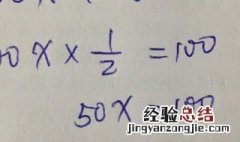 0 X × 1/2 = 100
50 X 100
经验总结
jingyanzongjie.com